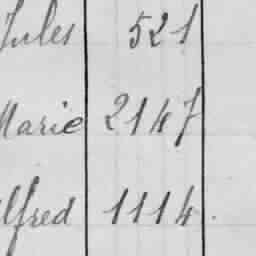 Jules 521
Marie 2147
Alfred 1114.